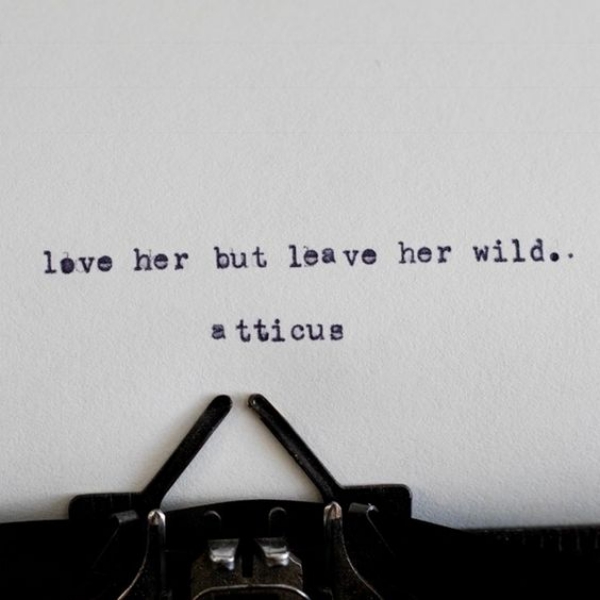 love her but leave her wild..
atticus